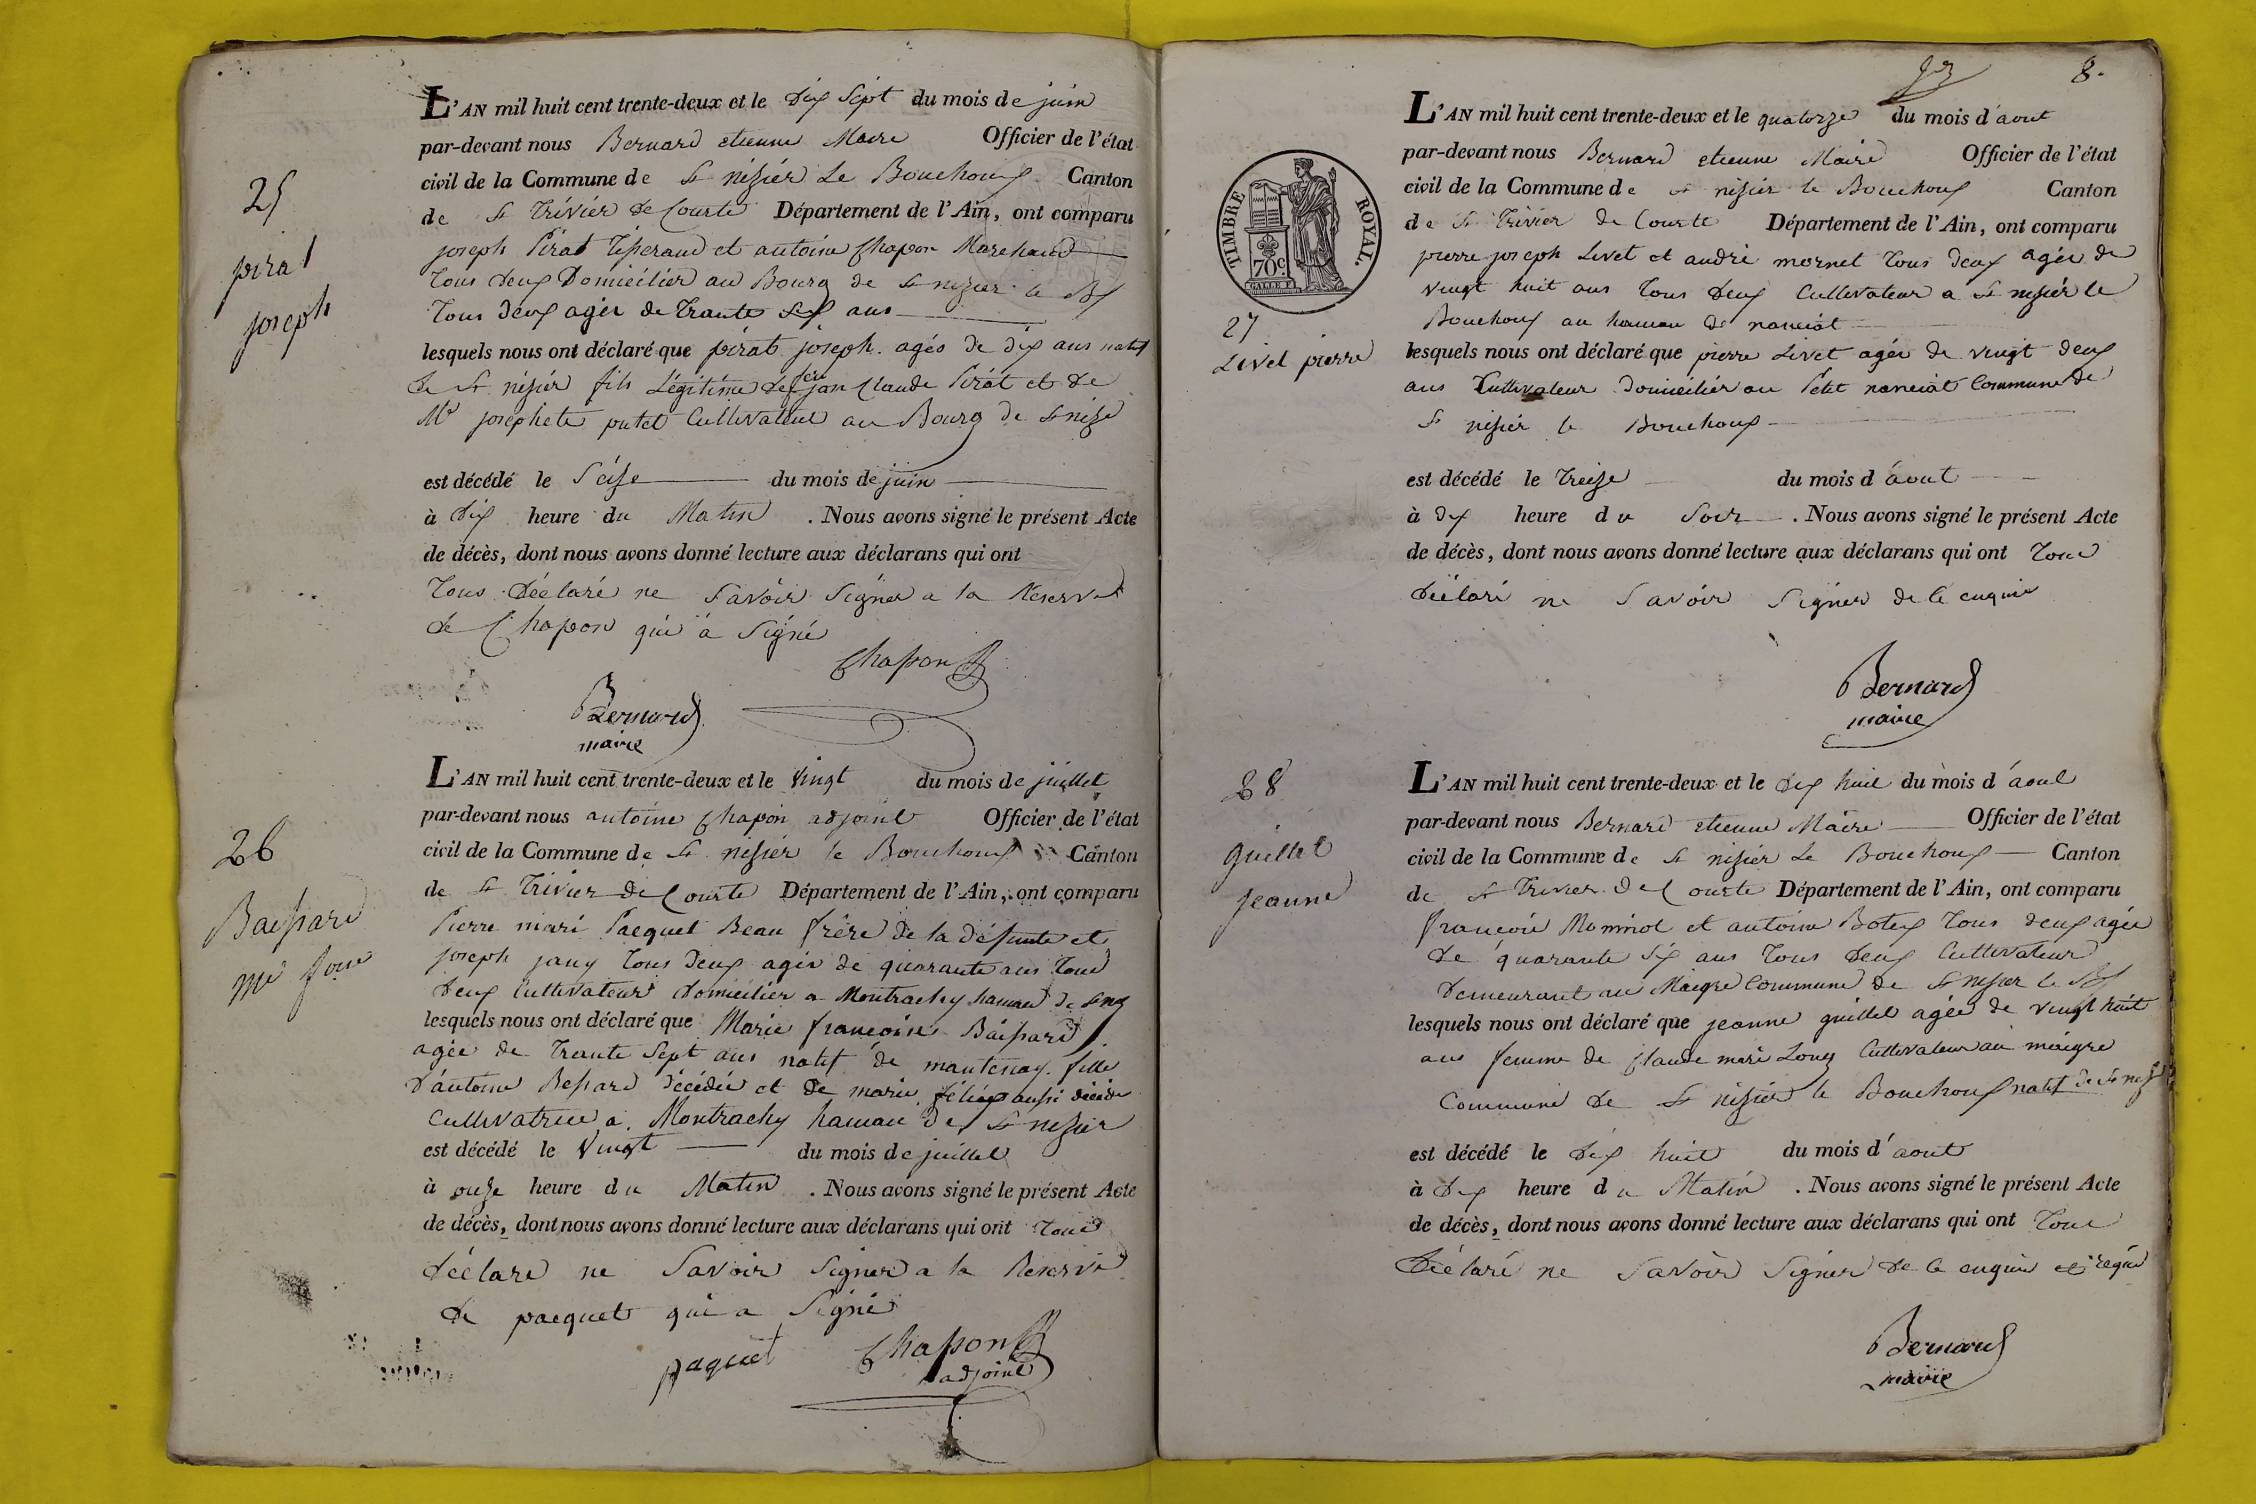 L'AN mil huit cent trente-deux et le dix sept du mois de juin
par-devant nous Bernard etienne Maire Officier de l'état
civil de la Commune de St nizier Le Bouchoux Canton
de St Trivier de Courte Département de l'Ain, ont comparu
25
pirat
joseph
joseph Pirat Tisserand et antoine Chapon Marchand
Tous deux Domicilier au Bourg de St nizier le Bx
Tous deux agée de Trante six ans
lesquels nous ont déclaré que pirat joseph. agés de dix ans natif
de St nizier fils Légitime de feu jan Claude Pirat et de
Me josephete putet Cultivateur au Bourg de St nizie
est décédé le Seize du mois de juin
à dix heure du Matin . Nous avons signé le présent Acte
de décès, dont nous avons donné lecture aux déclarans qui ont
Tous déclaré ne Savoir Signer a la Reserve
de Chapon qui a Signé
Chapon
Bernard
maire
L'AN mil huit cent trente-deux et le Vingt du mois de juillet
par-devant nous antoine Chapon adjoint Officier de l'état
civil de la Commune de St nizier le Bouchoux Canton
de St Trivier de Courte Département de l'Ain, ont comparu
26
Baissard
me foise
Pierre mari Pacquet Beau frère de la défunte et
joseph jany Tous deux agée de quarante ans Tous
deux Cultivateur domicilier a Montrachy hamau de St niz
lesquels nous ont déclaré que Marie françoise Baissard
agée de Trante Sept ans natif de mantenay fille
d'antoine Bessard décédée et de marie féliax aussi décédé
Cultivatrice a Montrachy hamau de St nizier
est décédé le Vingt du mois de juillet
à onze heure du Matin . Nous avons signé le présent Acte
de décès, dont nous avons donné lecture aux déclarans qui ont Tous
déclaré ne Savoir Signer a la Reserve
de pacquet qui a Signé
paquet Chapon
adjoint
8.
L'AN mil huit cent trente-deux et le quatorze du mois d'aout
par-devant nous Bernard etienne Maire Officier de l'état
civil de la Commune de St nizier le Bouchoux Canton
de St Trivier de Courte Département de l'Ain, ont comparu
TIMBRE ROYAL.
70c
27
Livet pierre
pierre joseph Livet et andré mornet Tous deux agée de
vingt huit ans Tous deux Cultivateur a St nizier le
Bouchoux au hameau de nanciat
lesquels nous ont déclaré que pierre Livet agée de vingt deux
ans Cultivateur domicilier au Petit nanciat Commune de
St nizier le Bouchoux
est décédé le Treize du mois d'aout
à dix heure du Soir . Nous avons signé le présent Acte
de décès, dont nous avons donné lecture aux déclarans qui ont Tous
déclaré ne Savoir Signer de ce enquie
Bernard
maire
L'AN mil huit cent trente-deux et le dix huit du mois d'aout
par-devant nous Bernard etienne Maire Officier de l'état
civil de la Commune de St nizier Le Bouchoux Canton
de St Trivier de Courte Département de l'Ain, ont comparu
28
guillet
jeanne
françois Monniot et antoine Botex Tous deux agée
de quarante six ans Tous deux Cultivateur
demeurant au Maigre Commune de St nizier le Bx
lesquels nous ont déclaré que jeanne guillet agée de vingt huit
ans femme de Claude mari Louy Cultivateur au maigre
Commune de St nizier le Bouchoux natif de St nizi
est décédé le dix huit du mois d'aout
à dix heure du Matin . Nous avons signé le présent Acte
de décès, dont nous avons donné lecture aux déclarans qui ont Tous
déclaré ne Savoir Signer de ce enquie et requie
Bernard
maire